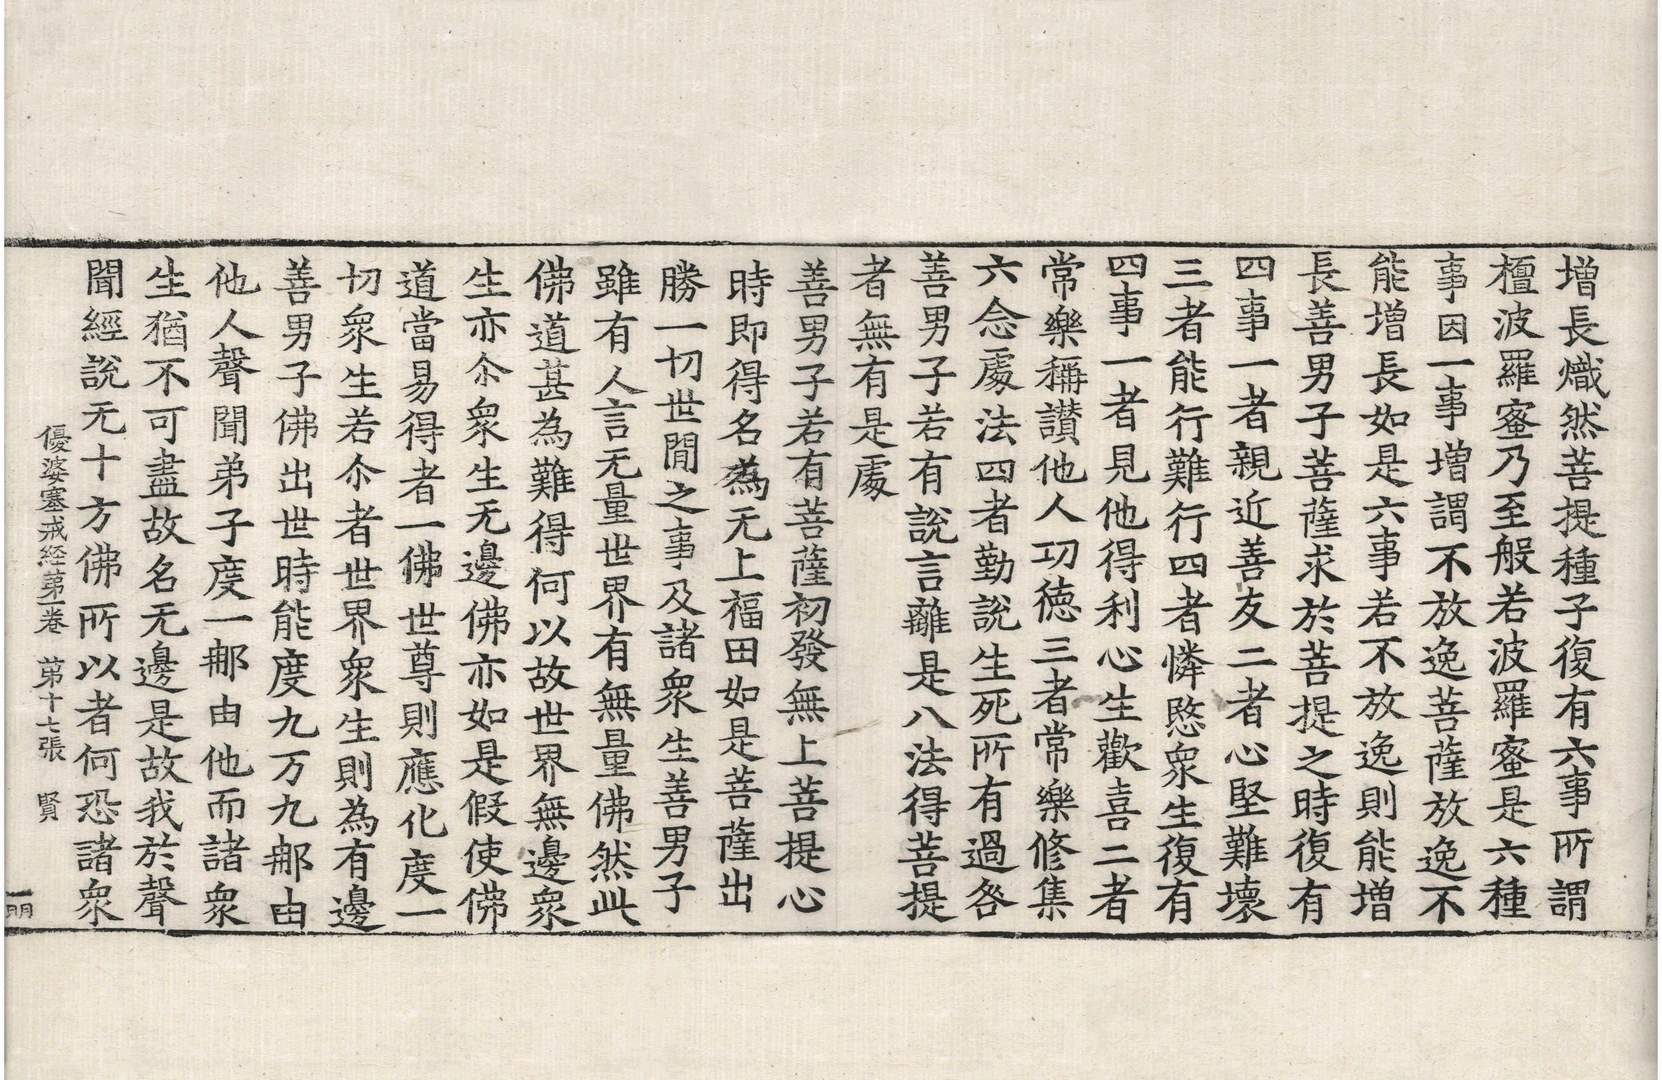 增長熾然菩提種子復有六事所謂
檀波羅蜜乃至般若波羅蜜是六種
事因一事增謂不放逸菩薩放逸不
能增長如是六事若不放逸則能增
長善男子菩薩求於菩提之時復有
四事一者親近善友二者心堅難壞
三者能行難行四者憐愍衆生復有
四事一者見他得利心生歡喜二者
常樂稱讃他人功德三者常樂修集
六念處法四者勤說生死所有過咎
善男子若有說言離是八法得菩提
者無有是處
善男子若有菩薩初發無上菩提心
時即得名為无上福田如是菩薩出
勝一切世閒之事及諸衆生善男子
雖有人言无量世界有無量佛然此
佛道甚為難得何以故世界無邊衆
生亦尒衆生无邊佛亦如是假使佛
道當易得者一佛世尊則應化度一
切衆生若尒者世界衆生則為有邊
善男子佛出世時能度九万九那由
他人聲聞弟子度一那由他而諸衆
生猶不可盡故名无邊是故我於聲
聞經說无十方佛所以者何恐諸衆
優婆塞戒經第一卷 第十七張 賢